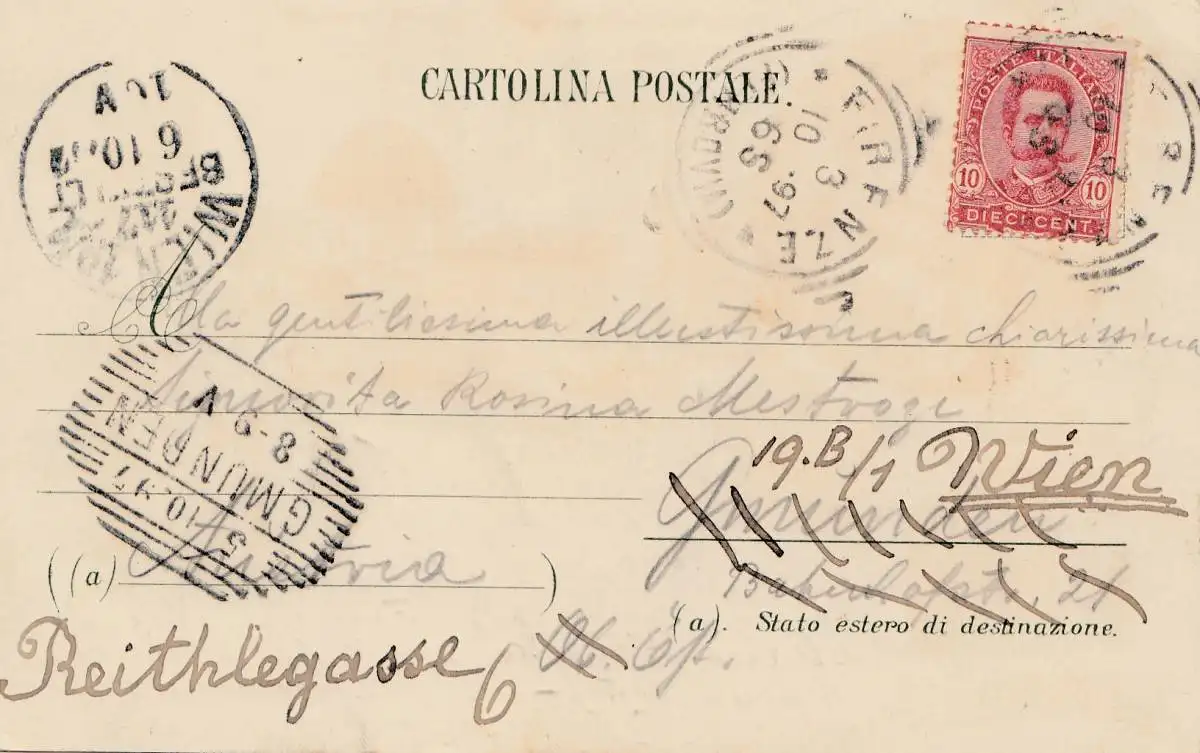 CARTOLINA POSTALE.
POSTE ITALIANE
10 10
DIECI CENT.
FIRENZE
10 3 97
6 S
(FERROVIA)
WIEN
BESTELLT
6.10.97
10 V
Alla gentilissima illustrissima chiarissima
Signorita Rosina Mestrozi
19.B/1 Wien
Gmunden
GMUNDEN
5 10 97
8-9 V
(a) Austria
Bahnhofstr. 21
(a). Stato estero di destinazione.
Reithlegasse 6
Ob. Öst.